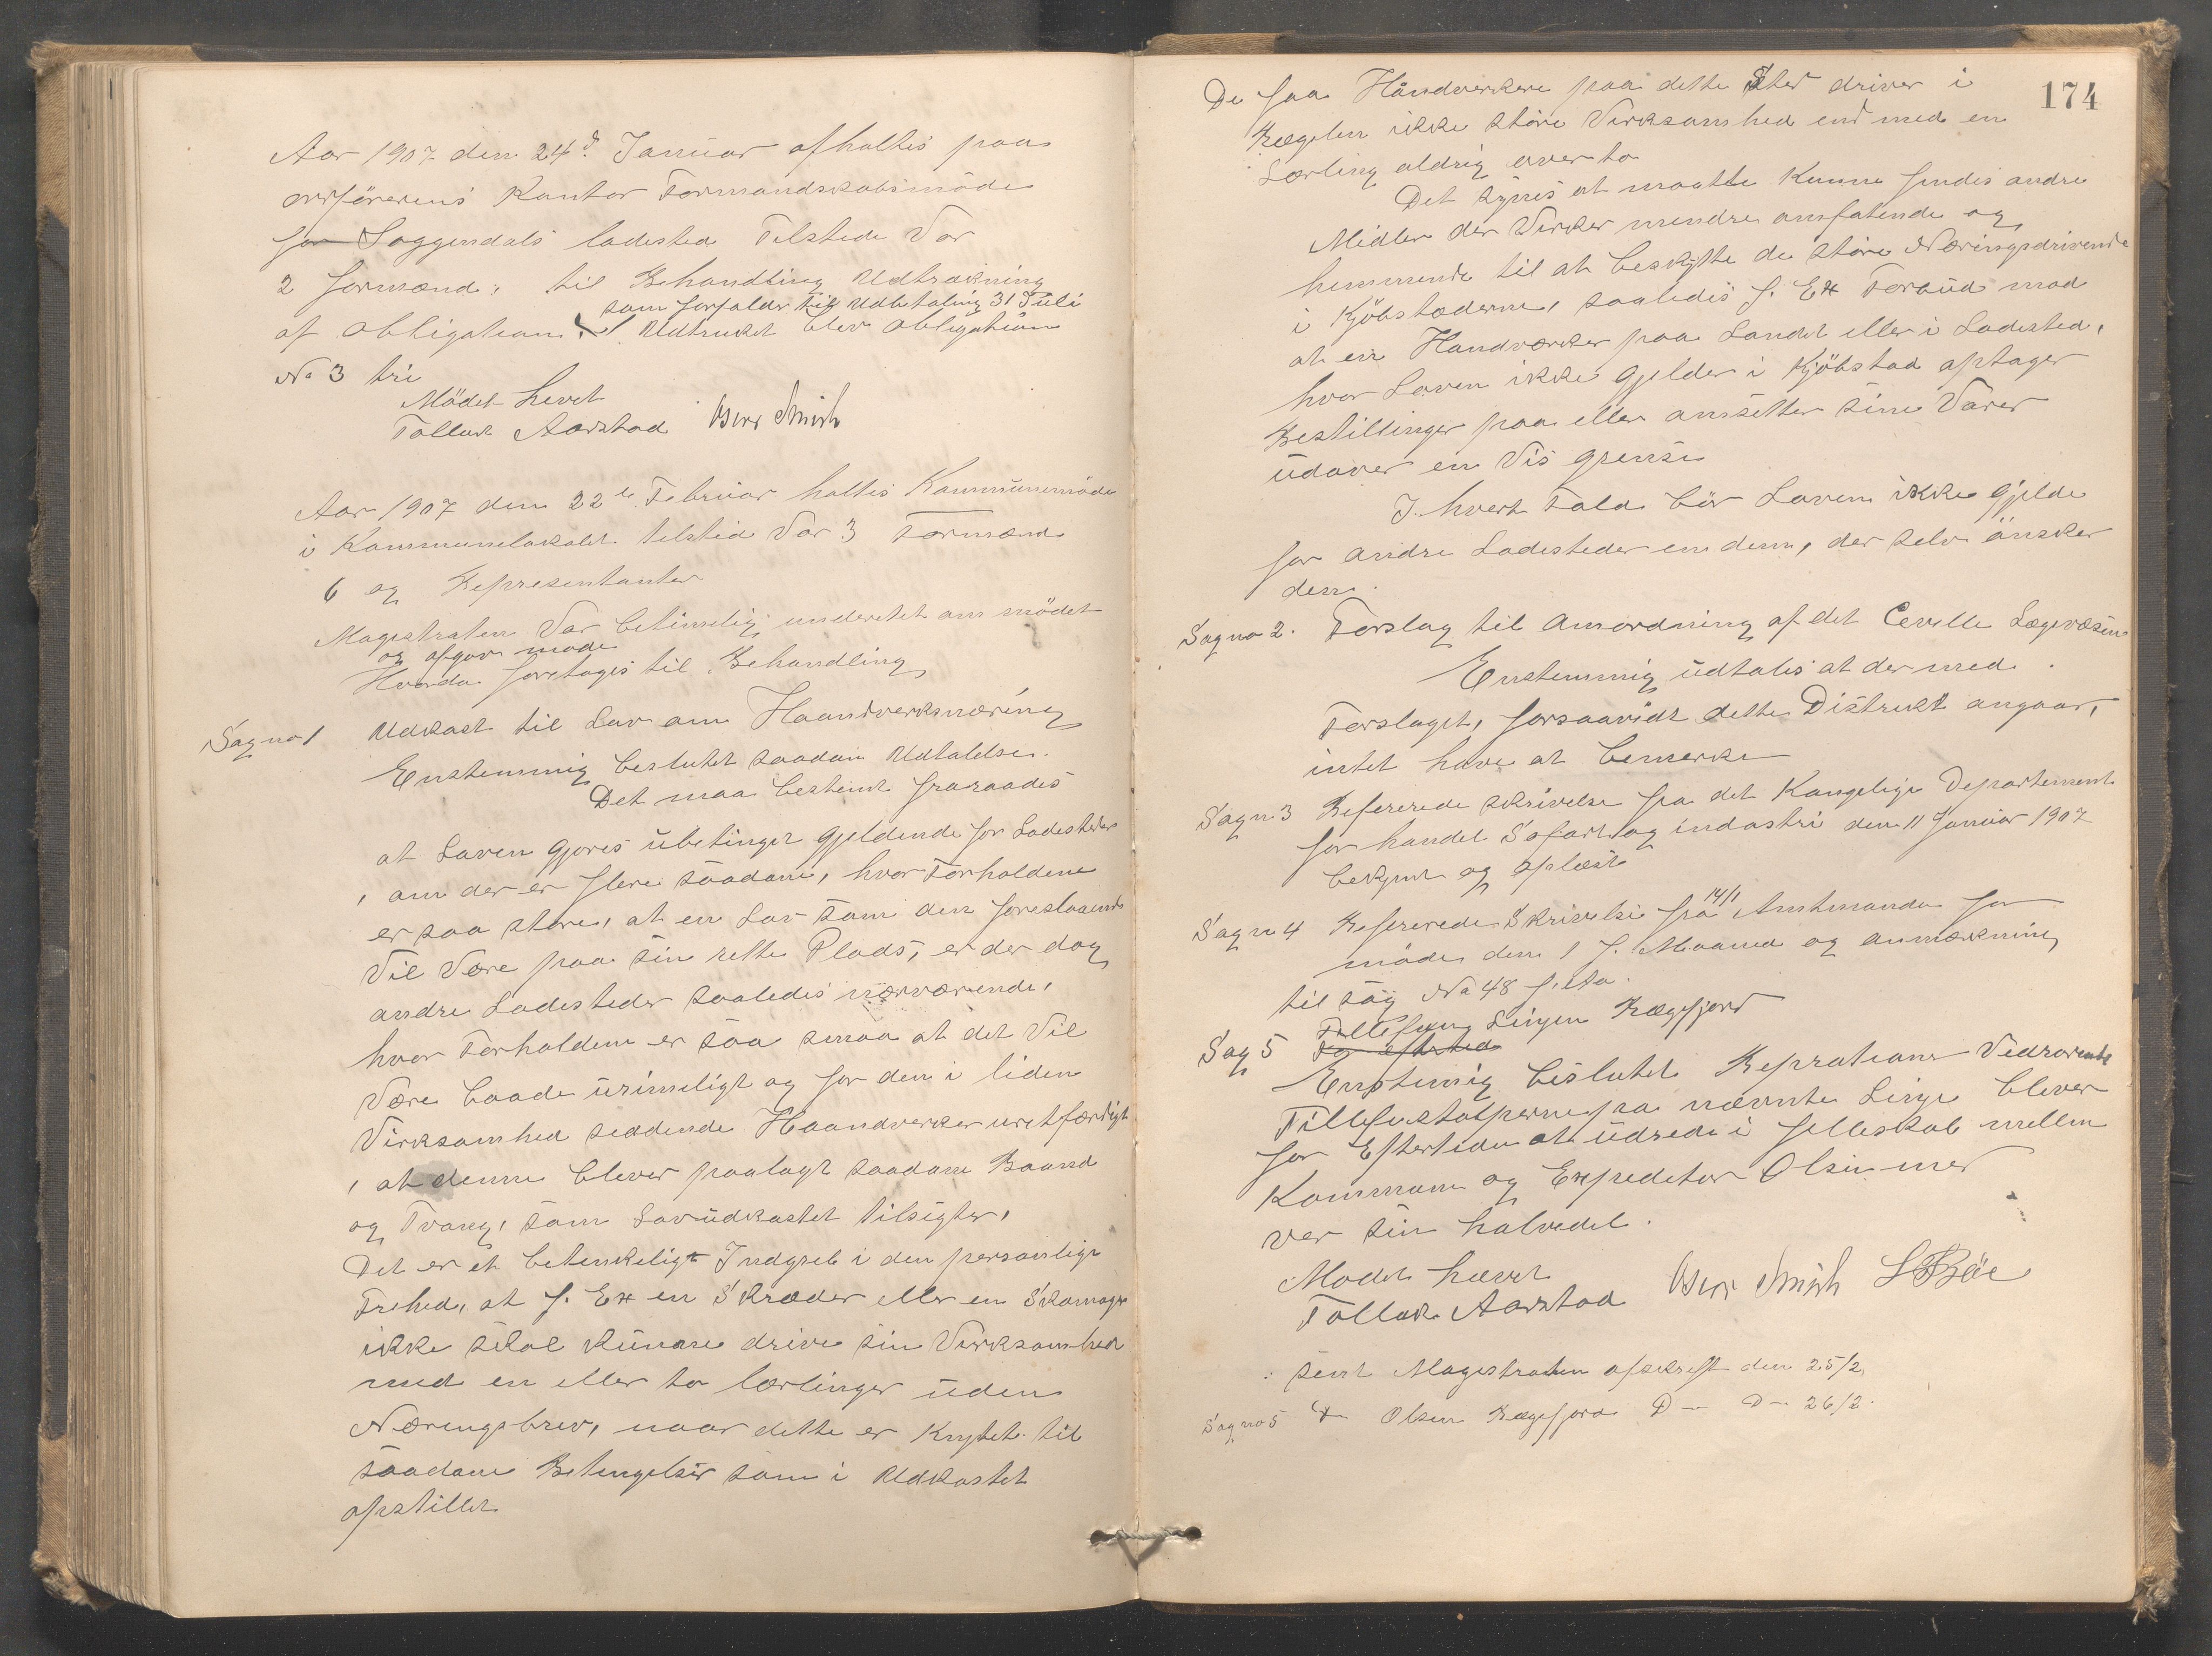 Aar 1907 den 24d Januar afholtes paa
orförerens Kontor Formandskabsmöde
for Soggendals ladested Tilstede Var
2 formænd, til Behandling Udtrækning
som forfalder til Udbetaling 31 Juli
af Obligation. Udtrukket blev Obligation
No 3 tri
Mödet hevet
Tollak Aarstad
Aar 1907 den 22de Februar holtes Kommunemöde
i Kommunelokalet telsted Var 3 Formænd
6 og Representanter
Magistraten Var betimelig underetet om mödet
og afgav møde
Hvorda foretages til Behandling
Sag no 1 Udkast til Lov om Haandverksnæring
Enstemmig beslutet saadan Udtalelse.
Det maa bestemt fraraades
at Loven gjøres ubetinget gjeldende for Ladesteder
, om der er flere saadane, hvor Forholdene
er saa store, at en Lov som den foreslaaende
Vil Være paa sin rette Plads, er der dog
andre Ladesteder saaledes nærværende,
hvor Forholdene er saa smaa at det Vil
Være baade urimeligt og for den i liden
Virksomhed seddende Haandverker uretfærdigt
, at denne blever paalagt saadane Baand
og Tvang, som Lovudkastet tilsigter,
Det er et betenkeligt Indgreb i den personlige
Frehed, at f. Ex en Skræder eller en Skomager
ikke skal kunne drive sin Virksomhed
med en eller to lærlinger uden
Næringsbrev, naar dette er Knytet til
saadane Betingelser som i Udkastet
opstillet
174
De faa Håndverkere paa dette Sted driver i
Regelen ikke störe Virksomhed end med en
Lærling aldrig over to
Det synes at maatte Kunne findes andre
Midler der Virker mendre omfatende og
hemmende til at beskytte de störe Næringsdrivende
i Kjöbstæderne, saaledes f. Ex Forbud mod
at en Handværker paa Landet eller i Ladested,
hvor Loven ikke gjelder i Kjöbstad optager
Bestillinger paa eller omsetter sine Varer
udover en Vis grense
I hvert Fald bör Loven ikke gjelde
for andre Ladesteder en dem, der selv önsker
den.
Sag no 2. Forslag til Omordning af det Cevelle Lægevæsen
Enstemmig udtales at der med
Forslaget, forsaavidt dette Distrukt angaar,
intet have at bemerke
Sag n 3 Refererede skrivelse fra det Kongelige Departement
for handel Søfart og indastri den 11 Januar 1907
bekjent og oplæst
Sag n 4 Refererede Skrivelse fra 14/1 Amtmanden for
möde den 1 f. Maaned og anmærkning
til sag No 48 f. Aa.
Sag 5 Tellefon Linjen Rægefjord
Enstemig beslutet Reprations Vedrørende
Tillefonstolperne paa nævnte Linje blever
for Eftertiden at udrede i felleskab mellem
Kommunen og Expeditør Olsen med
ver sin halvedel.
Mødet hævet
Tollak Aarstad
sent Magestraten afskreft den 25/2
Sag no 5 Do Olsen Rægefjord D— D— 26/2.